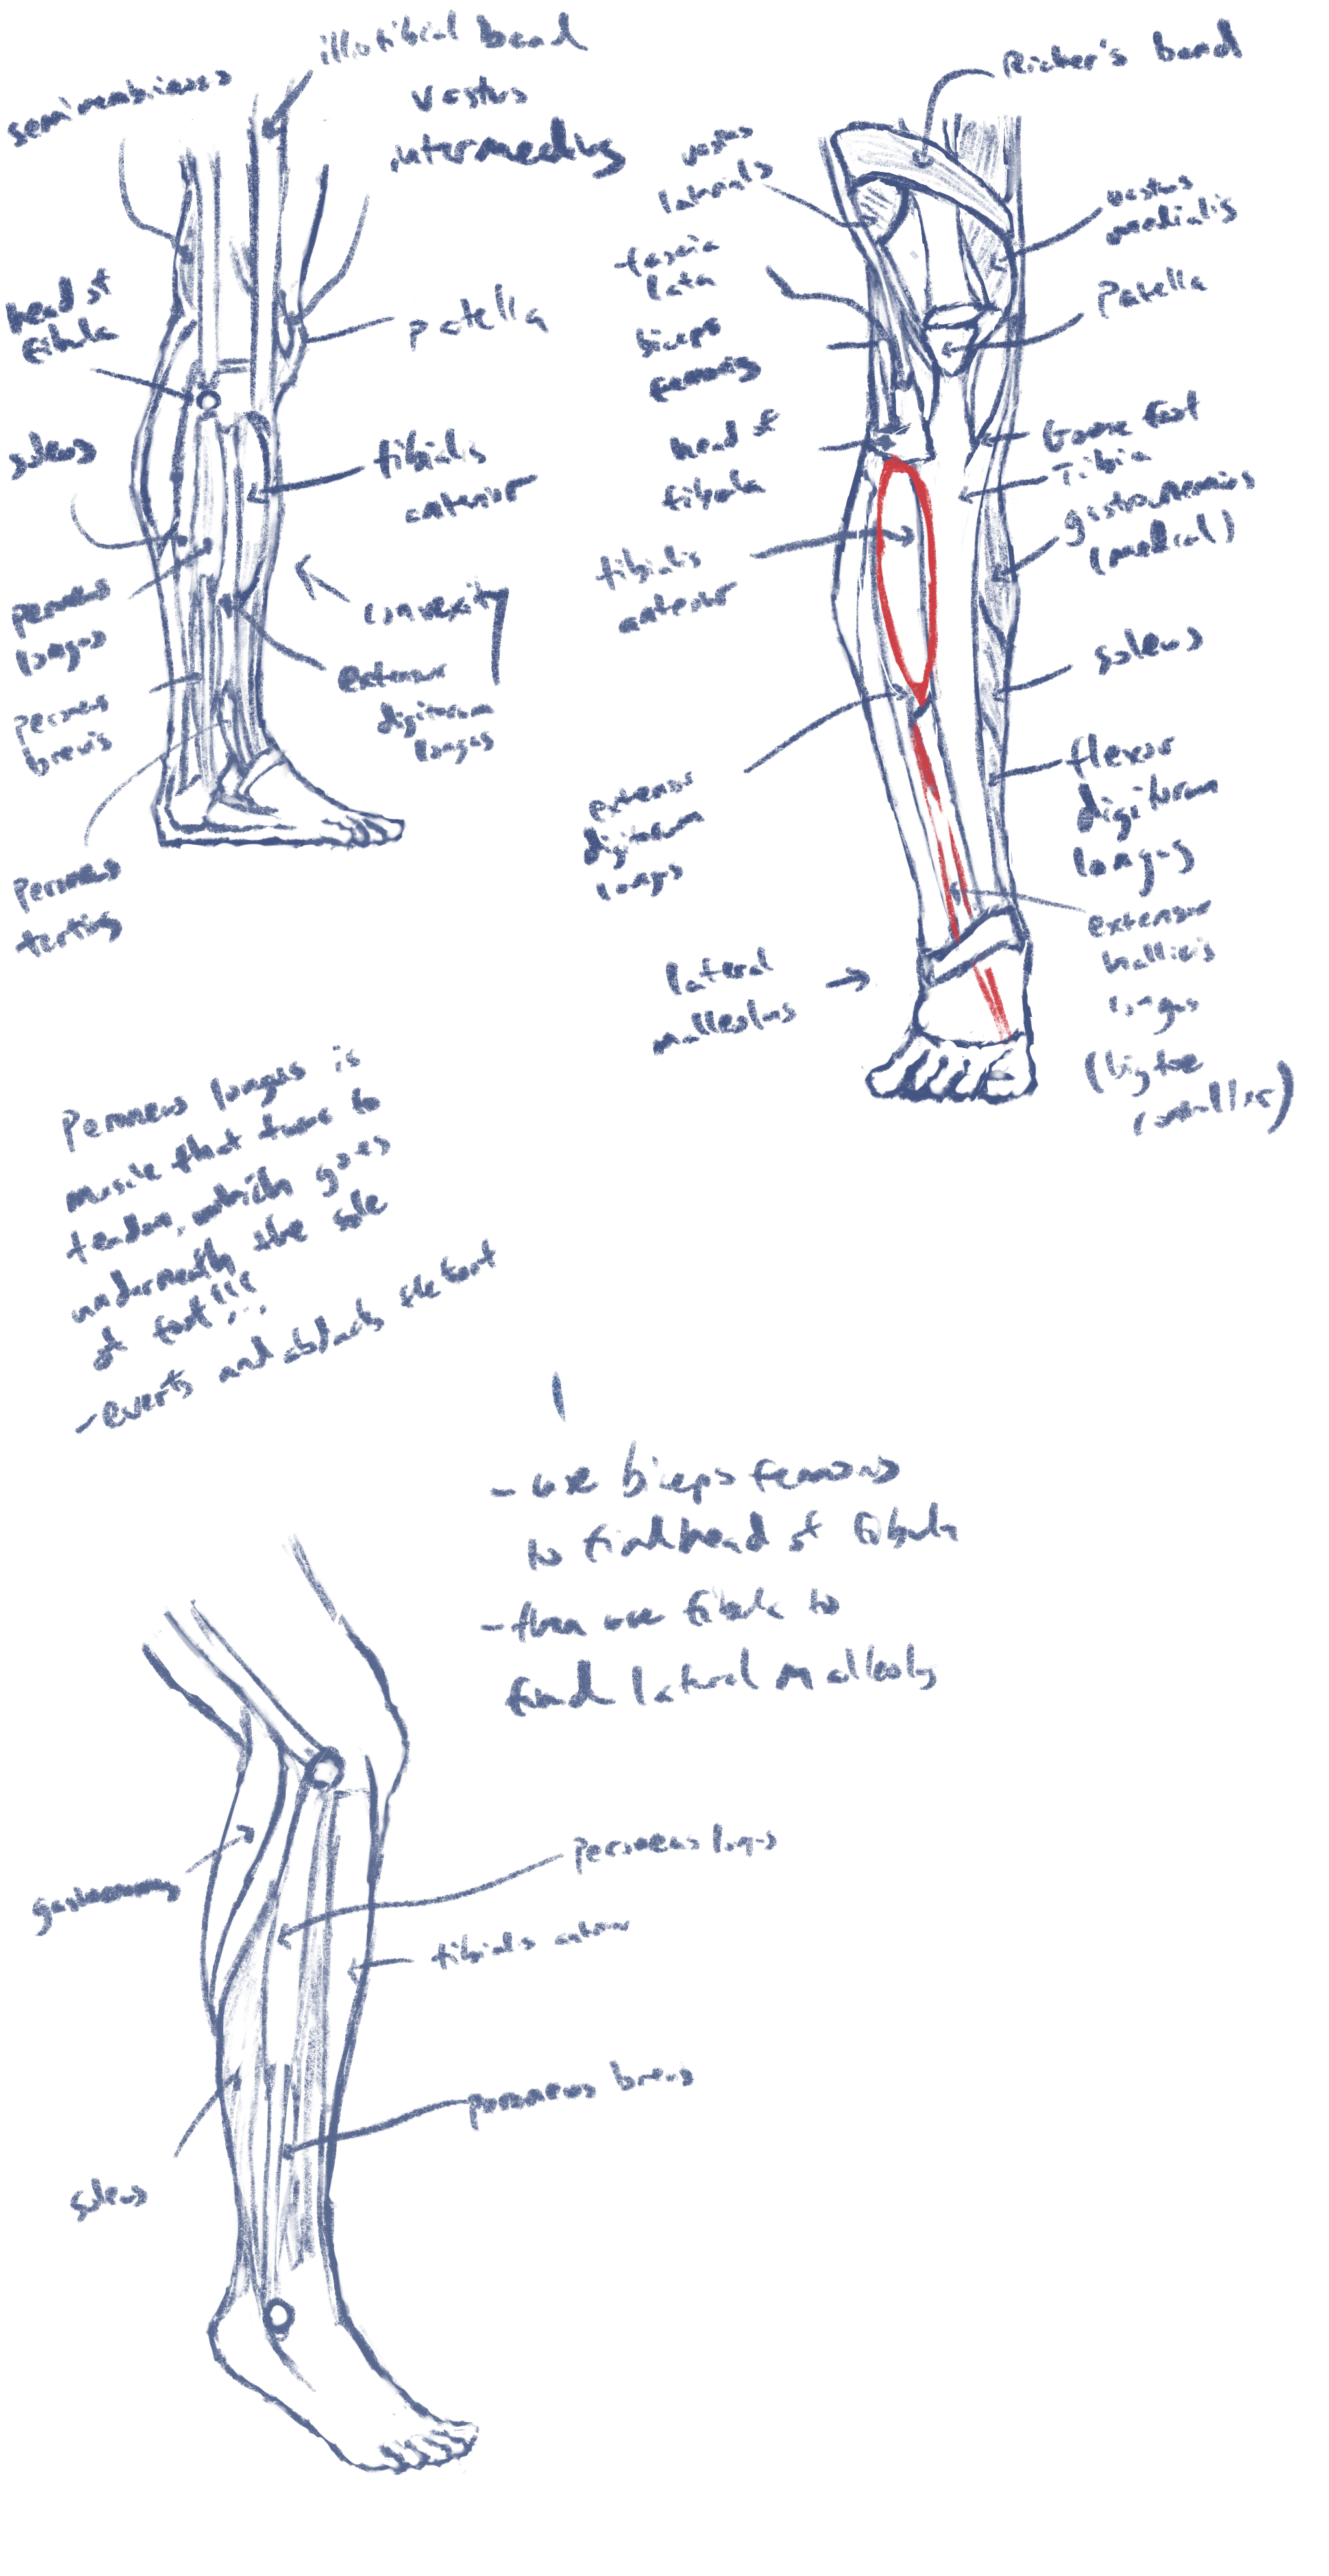 illiotibial band
semimembranosus
vastus
intermedius
head of
fibula
patella
soleus
tibialis
anterior
peroneus
longus
convexity
extensor
digitorum
longus
peroneus
brevis
peroneus
tertius
Richer's band
vastus
lateralis
vastus
medialis
fascia
lata
Patella
biceps
femoris
head of
fibula
Goose foot
Tibia
gastrocnemius
(medial)
tibialis
anterior
soleus
flexor
digitorum
longus
extensor
digitorum
longus
extensor
hallicis
longus
(big toe
lateral
malleolus
Peroneus longus is
muscle that turns to
tendon, which goes
underneath the sole
of foot!!!
- everts and abducts the foot
- use biceps femoris
to find head of fibula
- then use fibula to
find lateral malleolus
gastrocnemius
peroneus longus
tibialis anterior
peroneus brevis
soleus